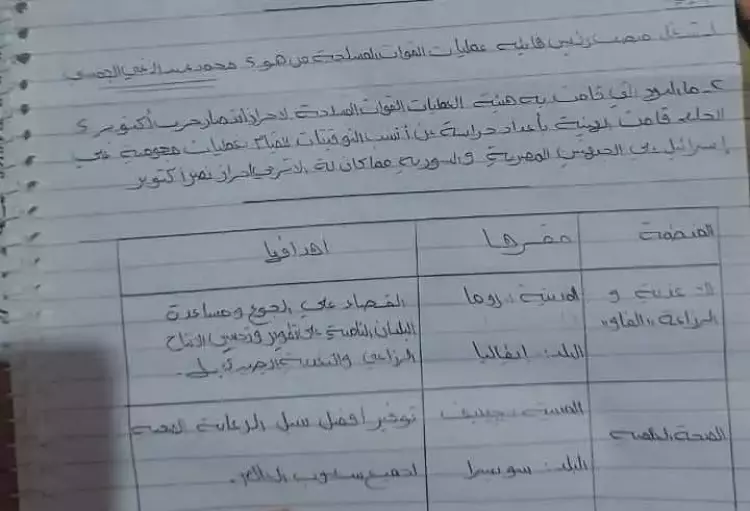 منصب رئيس هيئة عمليات القوات المسلحة من هو؟ محمد عبد الغني الجمسي
2- ما الدور الذي قامت به هيئة العمليات القوات المسلحة لاحراز انتصار حرب أكتوبر؟
قامت الهيئة بأعداد دراسة عن أنسب التوقيتات للقيام بعمليات هجومية
إسرائيل بين المصرية والسورية مما كان له في احراز نصر اكتوبر
المنظمة
مقرها
اهدافها
الاغذية و
الزراعة "الفاو"
المدينة: روما
البلد: ايطاليا
القضاء على الجوع ومساعدة
البلدان النامية على تطوير وتحسين الانتاج
الزراعي والتنمية
الصحة العالمية
المدينة: جينيف
البلد: سويسرا
توفير افضل سبل الرعاية الصحية
لجميع شعوب العالم.